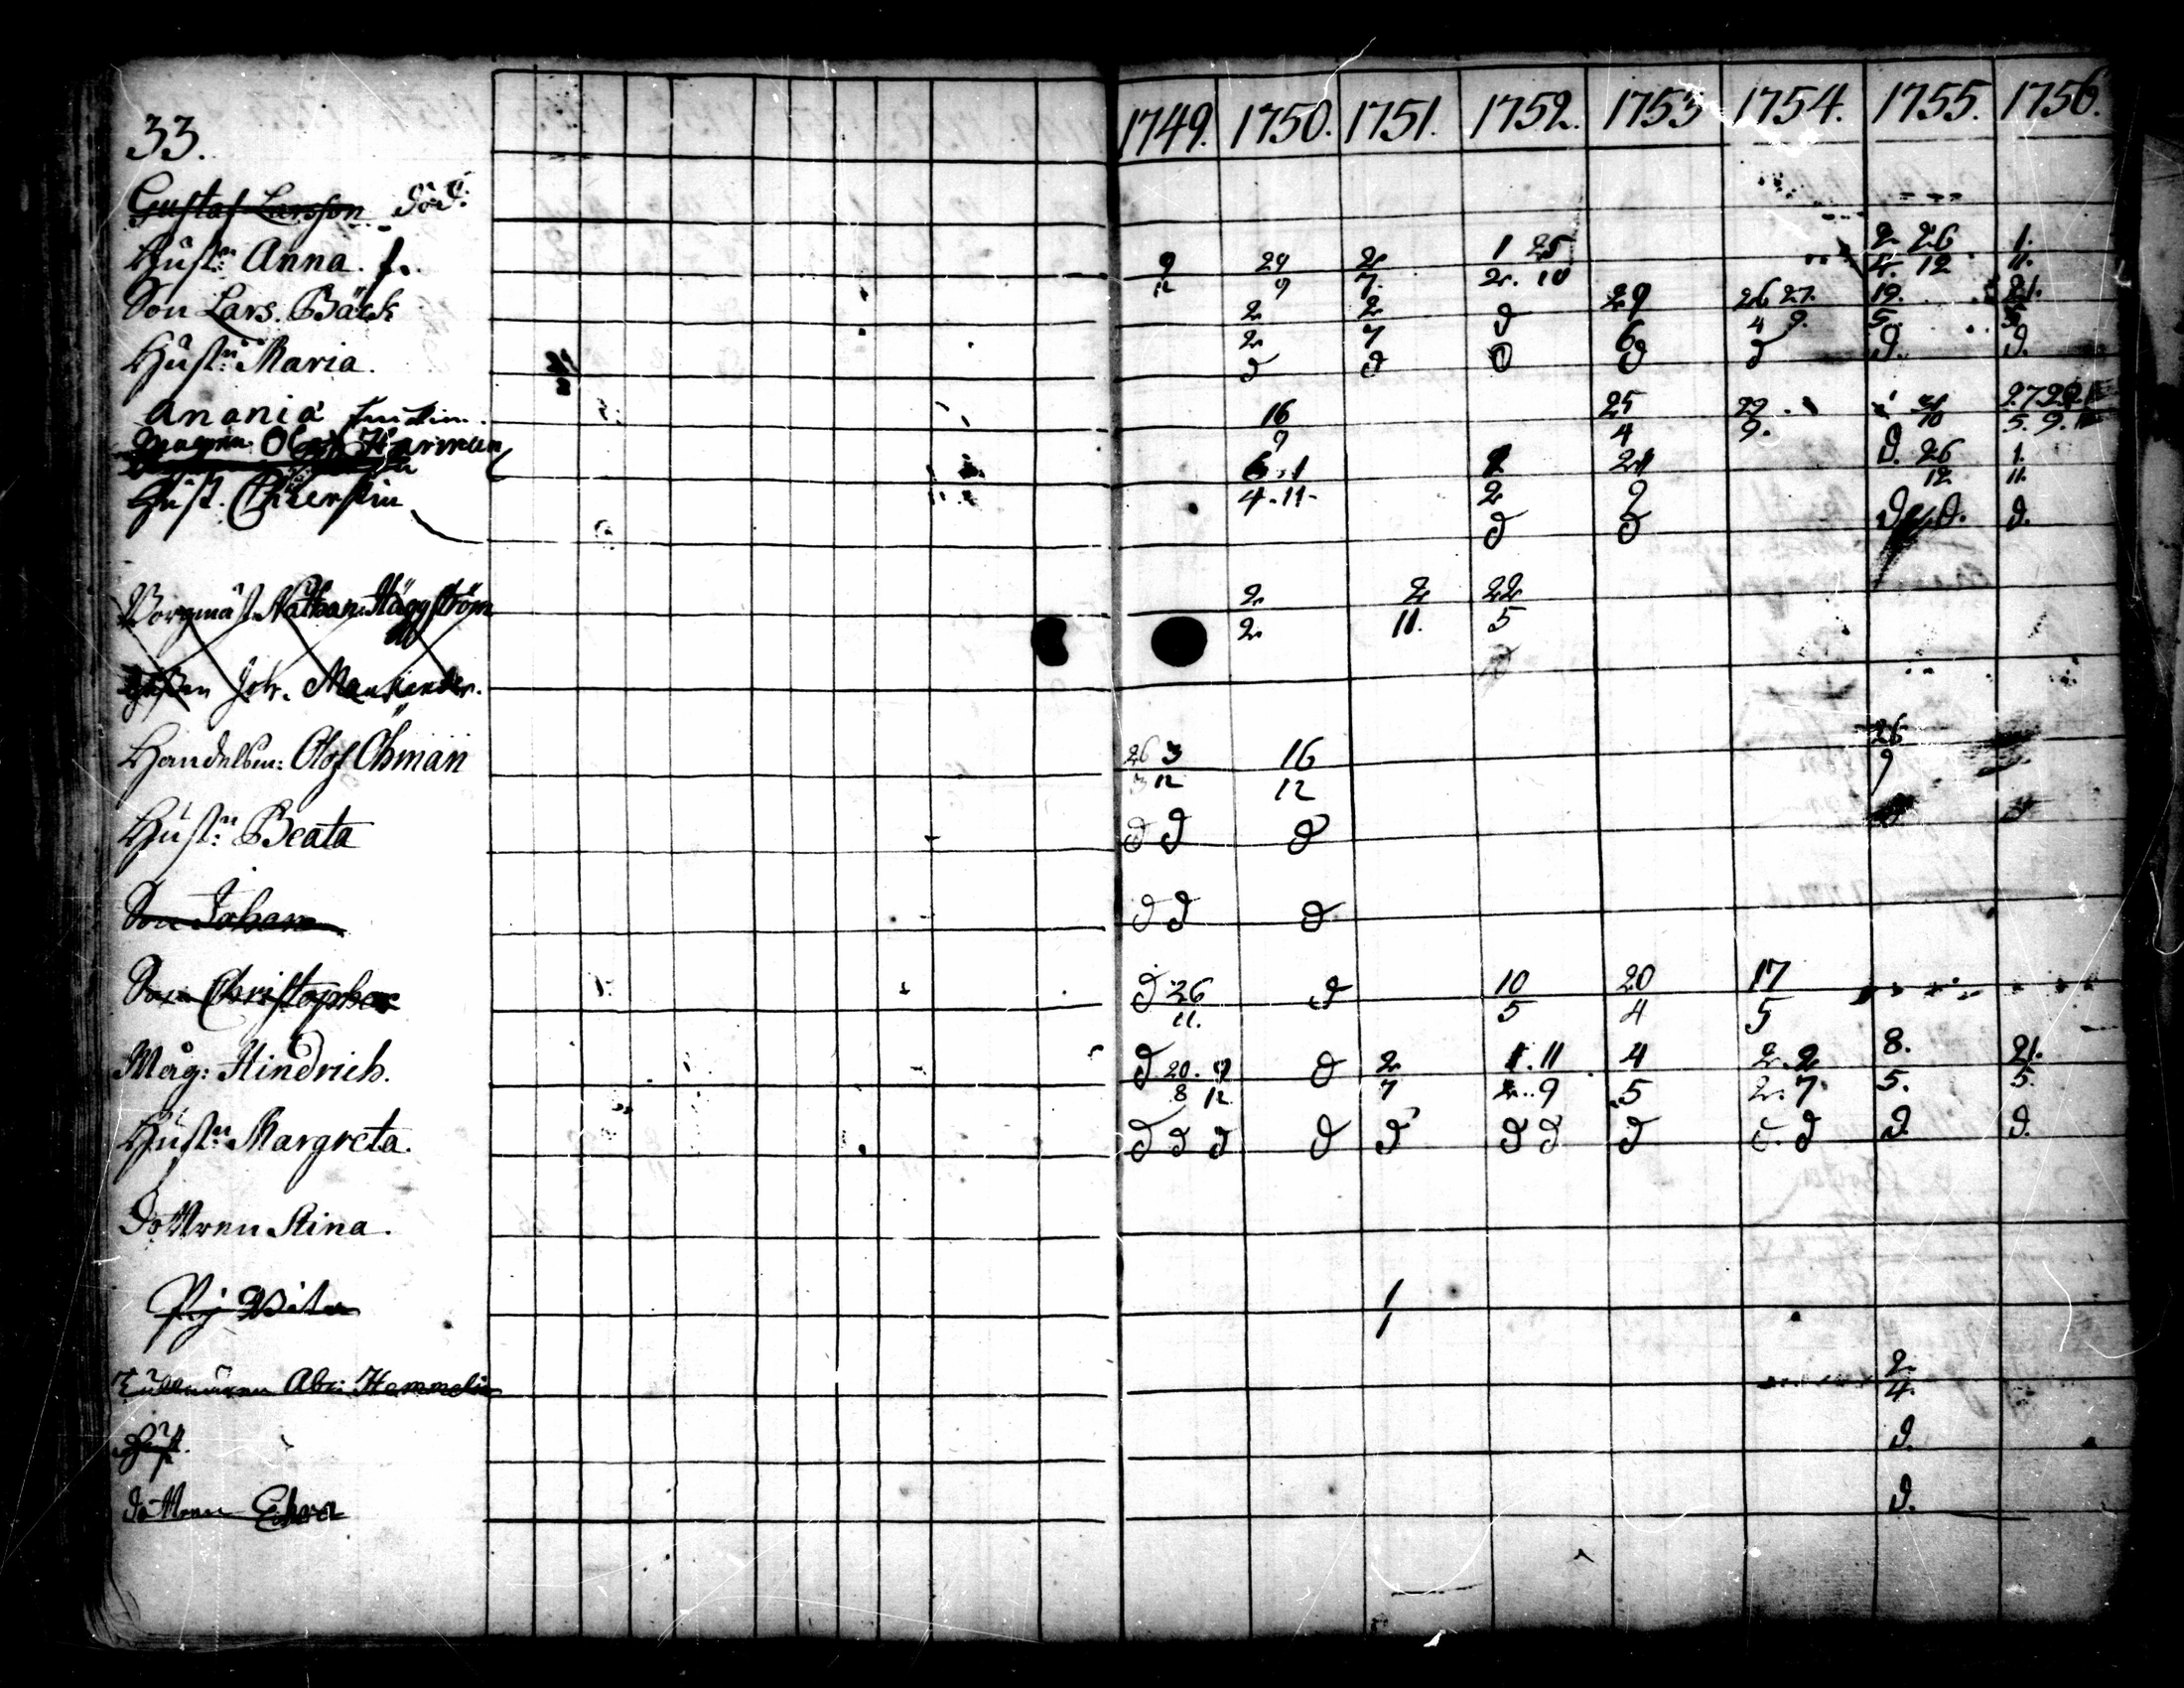 33. 1749. 1750. 1751. 1752. 1753 1754. 1755. 1756.
Gustaf Larsson död.
Hust:n Anna. f. 9/12 29/9 2/7. 1/2. 25/10 2/2. 26/12 1./11.
Son Lars. Bäck 2/2 2/7 D 29/6 26/4 27./9. 19./5. 21./5.
Hust:n Maria. D D D D D D. D.
Anania 16/9 25/4 29/9.
Olof 6/4. 1/11 1/2 21/9 D. 26/12 1./11.
Hust. Cherstin D D D D. D.
Borgmäst. Nathan Häggström 2/2 2/11. 22/5
Joh.
Handelsm: Olof Öhman 26/3 3/12 16/12 26/9
Hust:n Beata D D D
Son Johan D D D
Son Christopher D 26/11. D 10/5 20/4 17/5
Måg: Hindrich. D 20./8 9/12 D 2/7 1./2. 11/9 4/5 2./2. 2/7. 8./5. 21./5.
Hust:n Margreta. D D D D D D D D D. D D. D.
Dottren Stina.
Pij 1/1
Tullnären Abr: Hammelin 2/4.
Hust. D.
dottren D.